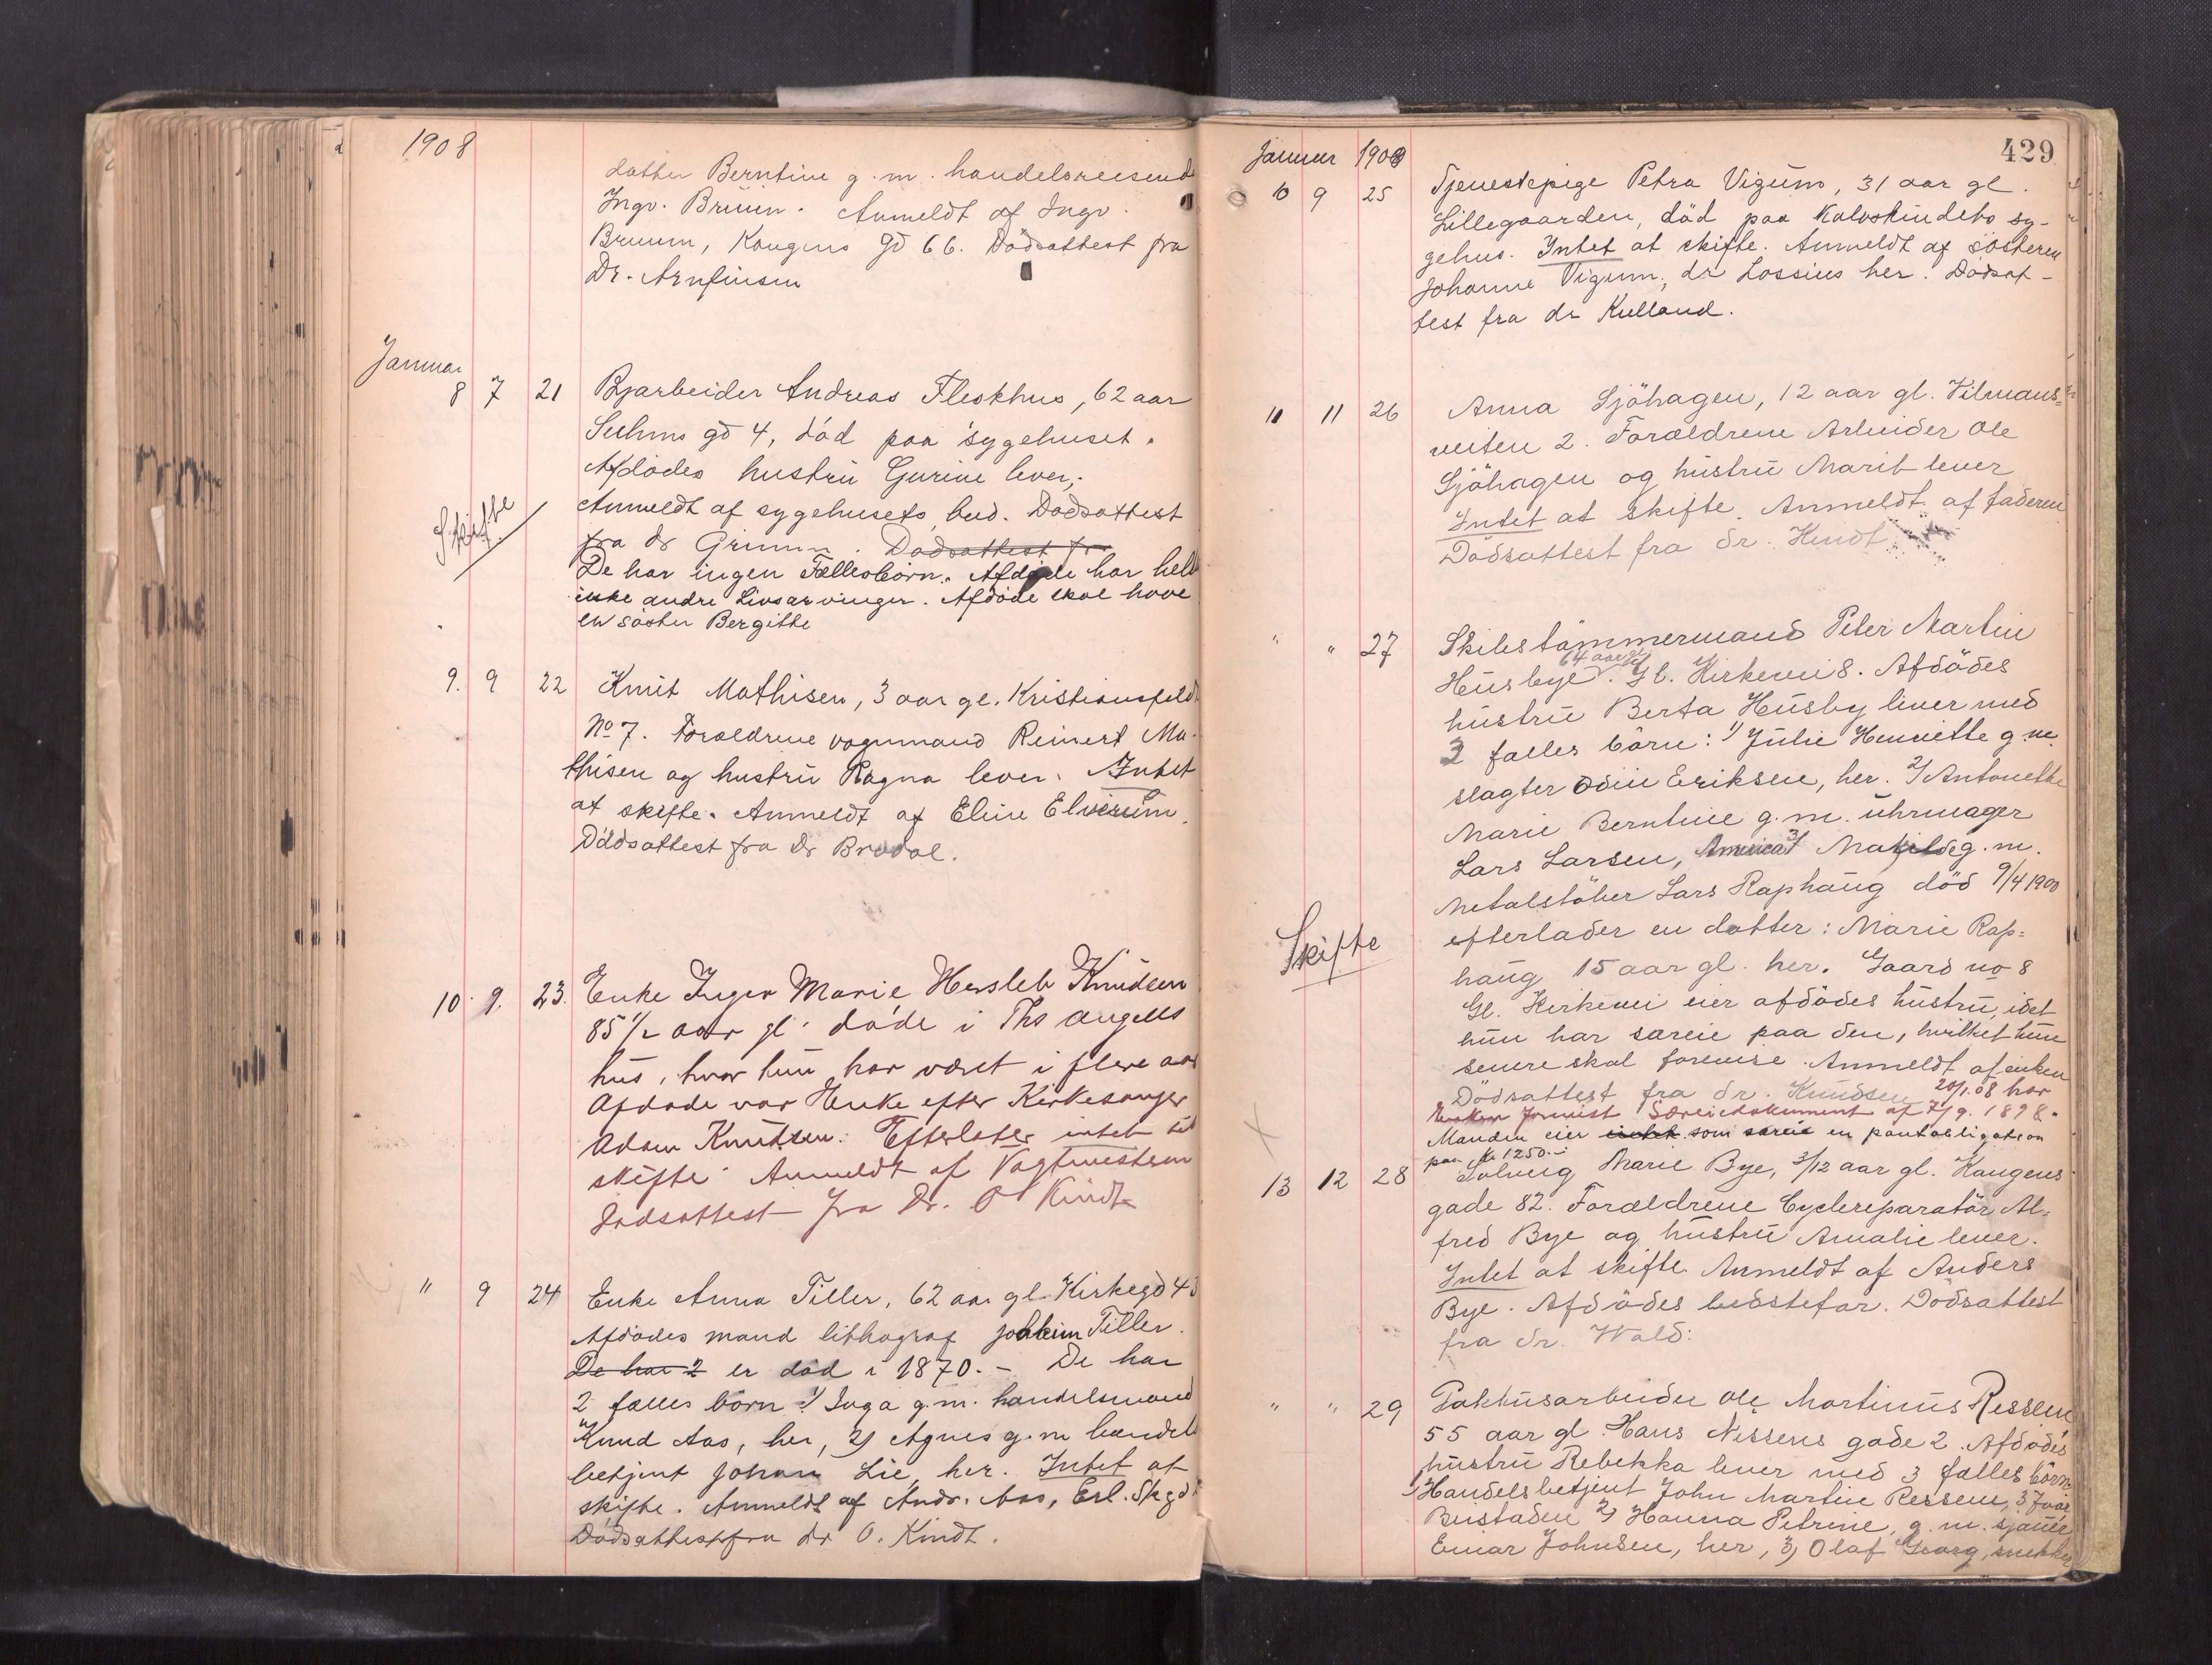 1908
datter Berntine g. m. handelsreisende
Ingv. Bruun. Anmeldt af Ingv.
Bruun, Kongens gd 66. Dödsattest fra
Dr. Arnfinsen
Januar
8 7 21 Byarbeider Andreas Fleskhus, 62 aar
Suhms gd 4, död paa sygehuset.
Afdödes hustru Gurine lever,
Anmeldt af sygehusets bud. Dodsattest
Skifte
fra dr Grimm. Dodsattest fr
De har ingen Fællesbörn. Afdöde har heller
ikke andre Livsarvinger. Afdöde skal have
en söster Bergitte
9. 9 22 Knut Mathisen, 3 aar gl. Kristiansfeld
No 7. Forældrene vognmand Reinert Ma-
thisen og hustru Ragna lever. Intet
at skifte. Anmeldt af Eline Elverum.
Dödsattest fra Dr Brodal.
10. 9. 23. Enke Inger Marie Hersleb Knudsen
85 1/2 aar gl. döde i Ths Angells
hus, hvor hun har været i flere aar
Afdöde var Enke efter Kirkesanger
Adam Knudsen. Efterlater intet til
skifte. Anmeldt af Vagtmesteren
Dødsattest fra Dr. O Kindt
" 9 24 Enke Anna Tiller, 62 aar gl. Kirkegd 43
Afdödes mand lithograf Joakim Tiller.
De har 2 er död i 1870. – De har
2 fælles börn 1) Inga g. m. handelsmand
Knud Aas, her, 2) Agnes g. m handels
betjent Johan Lie, her. Intet at
skifte. Anmeldt af Andr. Aas, Erl. Sk gd
Dödsattest fra dr O. Kindt.
429
Januar 1908
10 9 25 Tjenestepige Petra Vigum, 31 aar gl.
Lillegaarden, död paa Kalvskindets sy-
gehus. Intet at skifte. Anmeldt af søsteren
Johanne Vigum, dr Lossius her. Dödsat-
test fra dr Kulland.
11 11 26 Anna Sjöhagen, 12 aar gl. Vilmans-
veiten 2. Forældrene Arbeider Ole
Sjöhagen og hustru Marit lever
Intet at skifte. Anmeldt af faderen
Dödsattest fra dr. Kindt
" " 27 Skibstömmermand Peter Martin
64 aar gl
Husbye. Gl. Kirkevei 8. Afdödes
hustru Berta Husby lever med
3 fælles börn: 1) Julie Henriette g. m.
slagter Odin Eriksen, her. 2) Antonette
Marie Berntine g. m. uhrmager
Lars Larsen, Amerika 3) Matilde g. m.
Metalstöber Lars Raphaug död 9/4 1900
efterlader en datter: Marie Rap-
Skifte
haug 15 aar gl. her. Gaard no 8
Gl. Kirkevei eier afdödes hustru, idet
hun har særeie paa den, hvilket hun
senere skal forevise. Anmeldt af enken
Dödsattest fra dr. Knudsen 20/1.08 har
Enken forevist Særeiedokument af 7/9. 1898.
Manden eier intet som særeie en pantobligation
paa Kr 1250.-
13 12 28 Solveig Marie Bye, 3/12 aar gl. Kongens
gade 82. Forældrene Cyclereparatör Al-
fred Bye og hustru Amalie lever.
Intet at skifte Anmeldt af Anders
Bye. Afdödes bedstefar. Dödsattest
fra dr. Wold.
" " 29 Pakhusarbeider Ole Martinus Ressem
55 aar gl. Hans Nissens gade 2. Afdödes
hustru Rebekka lever med 3 fælles börn
1) Handelsbetjent John Martin Ressem, 37 aar
Buistaden 2) Hanna Petrine, g. m. sjauer
Einar Johnsen, her, 3) Olaf Georg, snekker